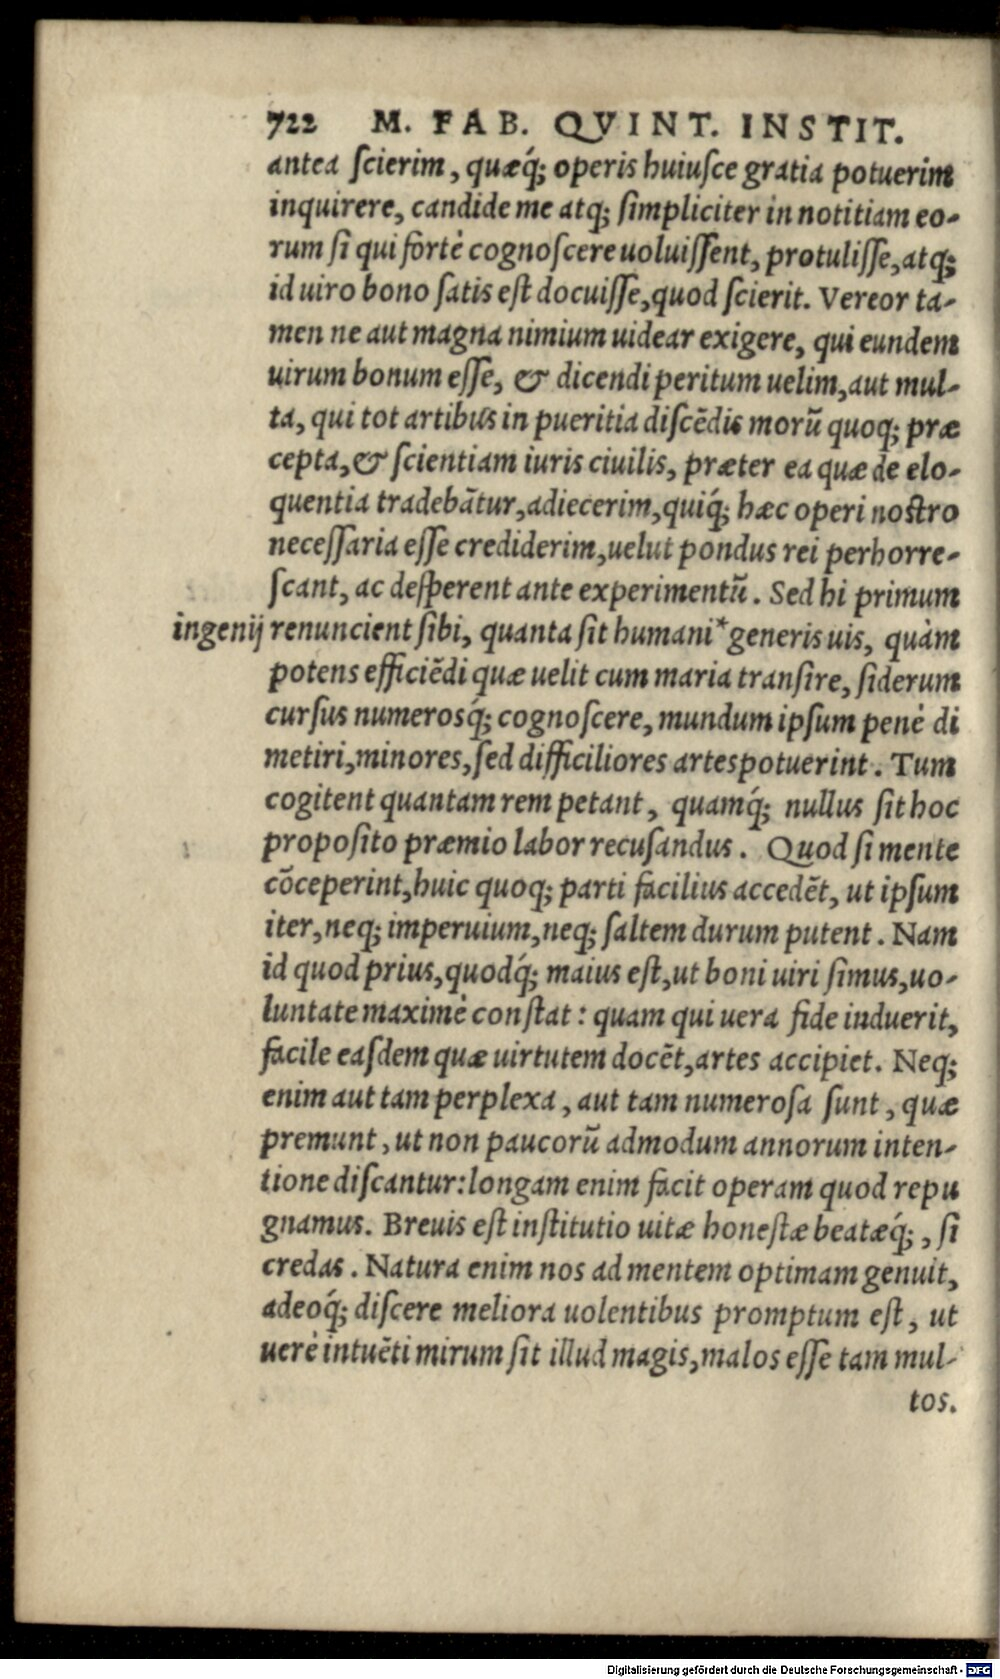 722 M. FAB. QVINT. INSTIT.
antea ſcierim, quæq́; operis huiuſce gratia potuerim
inquirere, candide me atq; ſimpliciter in notitiam eo-
rum ſi qui fortè cognoſcere uoluiſſent, protuliſſe, atq;
id uiro bono ſatis eſt docuiſſe, quod ſcierit. Vereor ta-
men ne aut magna nimium uidear exigere, qui eundem
uirum bonum eſſe, & dicendi peritum uelim, aut mul-
ta, qui tot artibus in pueritia diſcẽdis morũ quoq; præ
cepta, & ſcientiam iuris ciuilis, præter ea quæ de elo-
quentia tradebãtur, adiecerim, quiq́; hæc operi noſtro
neceſſaria eſſe crediderim, uelut pondus rei perhorre-
ſcant, ac deſperent ante experimentũ. Sed hi primum
ingenij renuncient ſibi, quanta ſit humani* generis uis, quàm
potens efficiẽdi quæ uelit cum maria tranſire, ſiderum
curſus numerosq́; cognoſcere, mundum ipſum penè di
metiri, minores, ſed difficiliores artes potuerint. Tum
cogitent quantam rem petant, quamq́; nullus ſit hoc
propoſito præmio labor recuſandus. Quod ſi mente
cõceperint, huic quoq; parti facilius accedẽt, ut ipſum
iter, neq; imperuium, neq; ſaltem durum putent. Nam
id quod prius, quodq́; maius eſt, ut boni uiri ſimus, uo-
luntate maximè conſtat: quam qui uera fide induerit,
facile eaſdem quæ uirtutem docẽt, artes accipiet. Neq;
enim aut tam perplexa, aut tam numeroſa ſunt, quæ
premunt, ut non paucorũ admodum annorum inten-
tione diſcantur: longam enim facit operam quod repu
gnamus. Breuis eſt inſtitutio uitæ honeſtæ beatæq́;, ſi
credas. Natura enim nos ad mentem optimam genuit,
adeoq́; diſcere meliora uolentibus promptum eſt, ut
uerè intuẽti mirum ſit illud magis, malos eſſe tam mul-
tos.
Digitalisierung gefördert durch die Deutsche Forschungsgemeinschaft - DFG